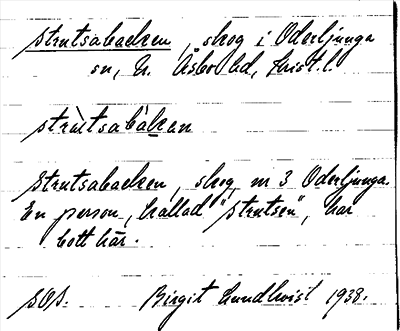 Strutsabacken, skog i Oderljunga
sn, N. Åsbo hd, Krist. l.
strùtsabàkan
Strutsabacken, skog nr 3 Oderljunga.
En person, kallad "Strutsen", har
bott här.
SOS. Birgit Lundkvist 1938.